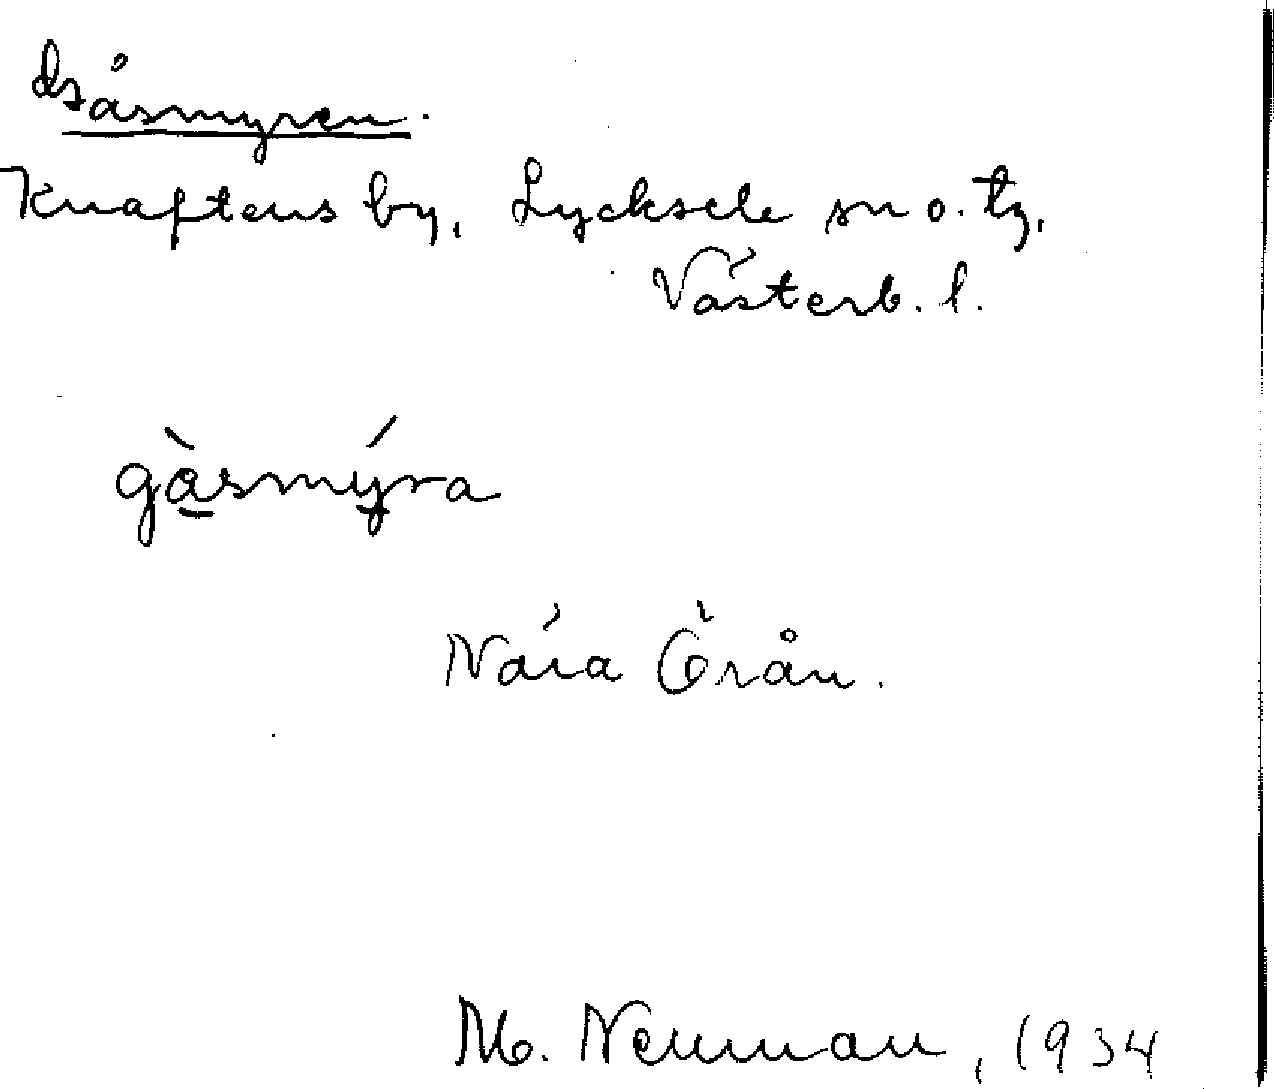 Gåsmyren.
Knaftens by, Lycksele sn o. tg,
Västerb. l.
gàsmýra
Nära Örån.
M. Neuman, 1934